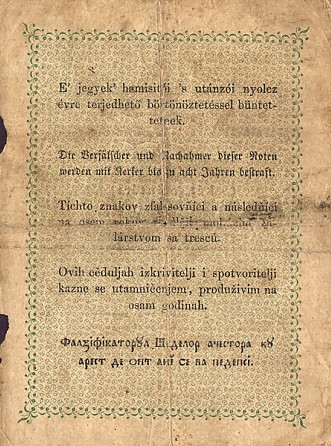 E' jegyek' hamisitói 's utánzói nyolcz
évre terjedhető börtönöztetéssel büntet-
tetnek.
Die Verfälscher und Nachahmer dieser Noten
werden mit Kerker bis zu acht Jahren bestraft.
Tichto znakov zfal sovníci a následníci
na osem rokov
lárstvom sa trescú.
Ovih céduljah izkrivitelji i spotvoritelji
kazne se utamničenjem, produživim na
osam godinah.
Фалзіфікаторꙋл ші делор ачестора кꙋ
арест де опт анĭ се ва педепсі.